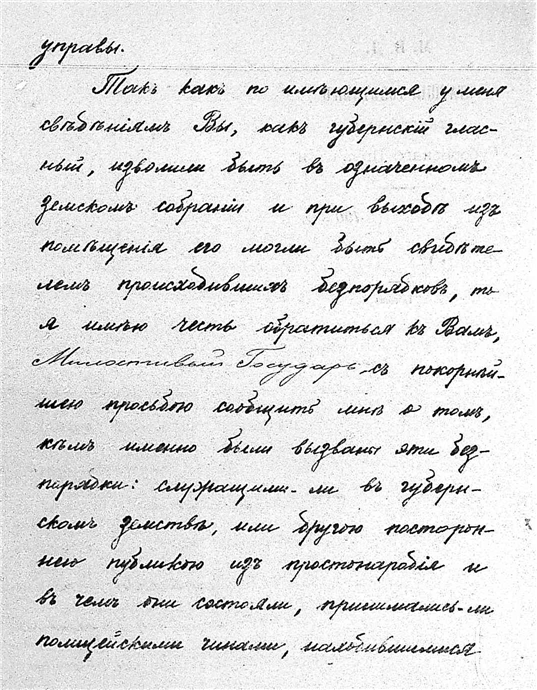 управы.
Такъ какъ по имѣющимся у меня
свѣдѣніямъ Вы, какъ губернскій глас-
ный, изволили быть въ означенномъ
земскомъ собраніи и при выходѣ изъ
помѣщенія его могли быть свидѣте-
лемъ происходившихъ безпорядковъ, то
я имѣю честь обратиться къ Вамъ,
Милостивый Государь, съ покорнѣй-
шею просьбою сообщить мнѣ о томъ,
кѣмъ именно были вызваны эти без-
порядки: служащими-ли въ губерн-
скомъ земствѣ, или другою посторон-
нею публикою изъ простонародія и
въ чемъ они состояли, принимались-ли
полицейскими чинами, находившимися